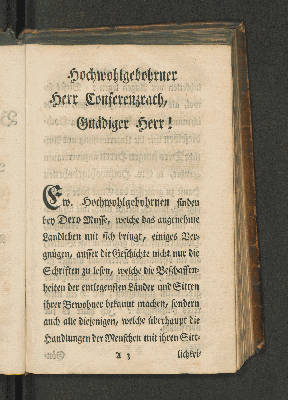 Hochwohlgebohrner
Herr Conferenzrath,
Gnädiger Herr!
Ew. Hochwohlgebohrnen finden
bey Dero Musse, welche das angenehme
Landleben mit sich bringt, einiges Ver-
gnügen, ausser die Geschichte nicht nur die
Schriften zu lesen, welche die Beschaffen-
heiten der entlegensten Länder und Sitten
ihrer Bewohner bekannt machen, sondern
auch alle diejenigen, welche überhaupt die
Handlungen der Menschen mit ihren Sitt-
A 3 lichkei-